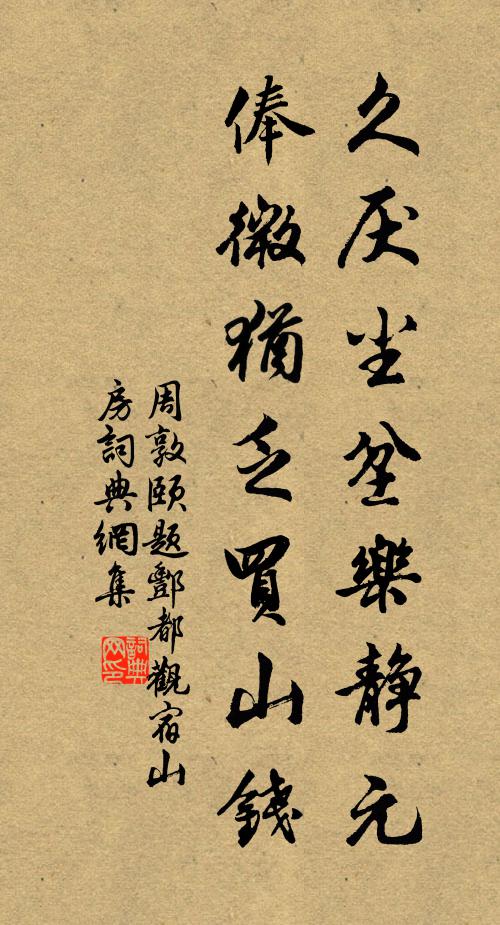 久厌尘坌樂静元
俸微猶乏買山錢
周敦颐题酆都觀宿山
房詞典網集
詞典
网印